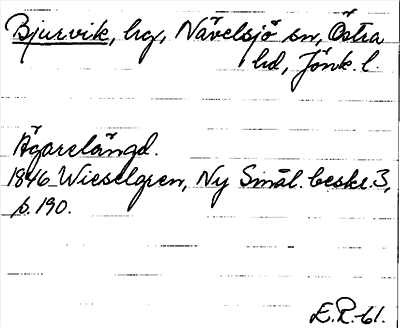 Bjurvik, hrg, Nävelsjö sn, Östra
hd, Jönk. l.
Ägarelängd.
1846 Wieselgren, Ny Smål. beskr. 3,
p. 190.
E.R. 61.